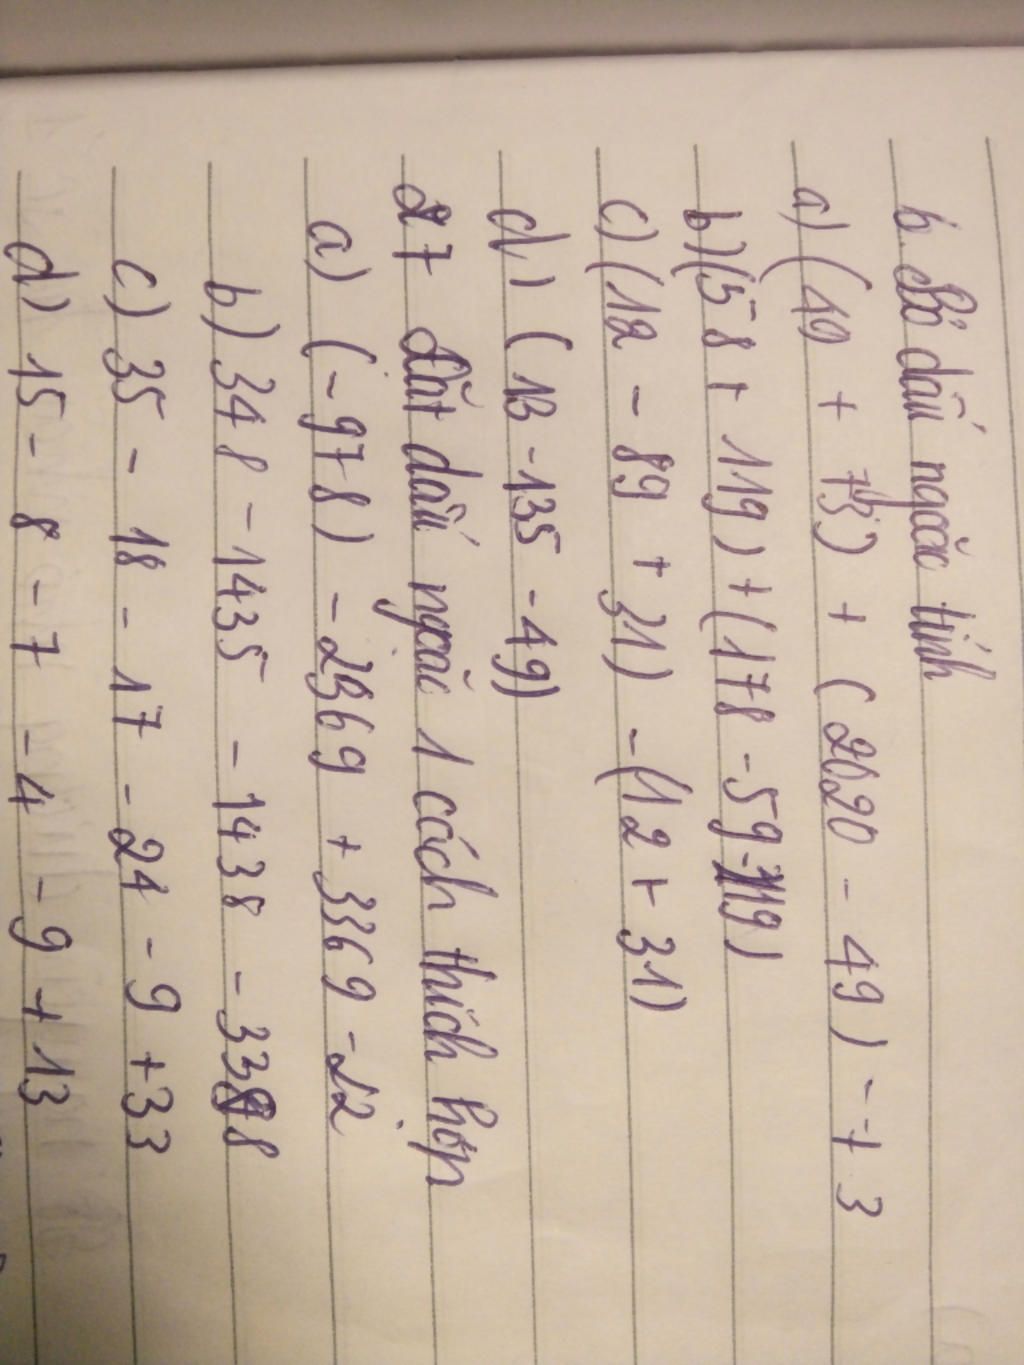 6. Bỏ dấu ngoặc tính
a) (49 + 73) + (2020 - 49) - 73
b) (58 + 119) + (178 - 59 - 119)
c) (12 - 89 + 31) - (12 + 31)
d,) (13 - 135 - 49)
27 Đặt dấu ngoặc 1 cách thích hợp
a) (-978) - 2369 + 3369 - 22
b) 348 - 1435 - 1438 -
c) 35 - 18 - 17 - 24 - 9 + 33
d) 15 - 8 - 7 - 4 - 9 + 13